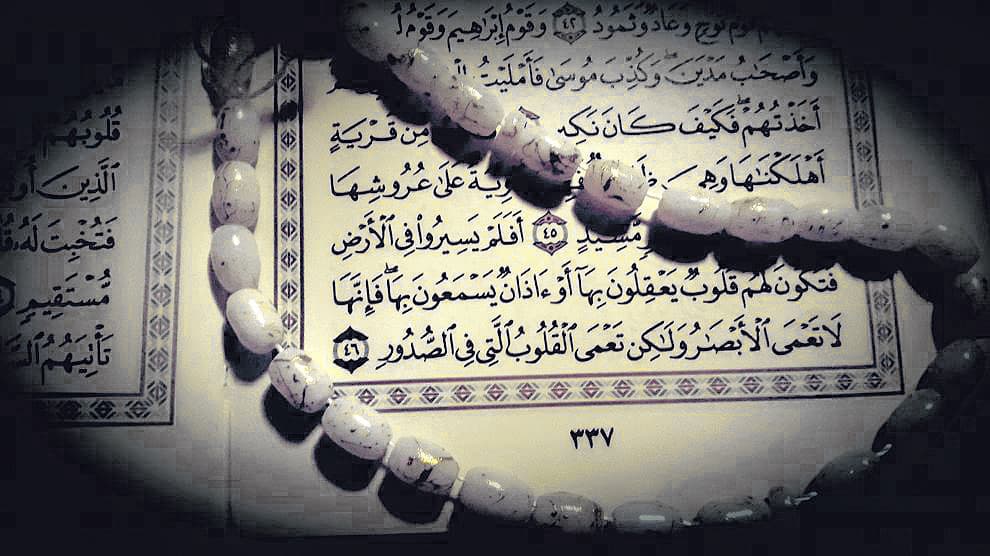 قَوْمُ نُوحٍ وَعَادٌ وَثَمُودُ ٤٢ وَقَوْمُ إِبْرَٰهِيمَ وَقَوْمُ
وَأَصْحَٰبُ مَدْيَنَۖ وَكُذِّبَ مُوسَىٰ فَأَمْلَيْتُ
أَخَذْتُهُمْۖ فَكَيْفَ كَانَ مِّن قَرْيَةٍ
أَهْلَكْنَٰهَا عَلَىٰ عُرُوشِهَا
مَّشِيدٍ ٤٥ أَفَلَمْ يَسِيرُوا۟ فِي ٱلْأَرْضِ
فَتَكُونَ لَهُمْ قُلُوبٌ يَعْقِلُونَ بِهَآ أَوْ ءَاذَانٌ يَسْمَعُونَ بِهَاۖ فَإِنَّهَا
لَا تَعْمَى ٱلْأَبْصَٰرُ وَلَٰكِن تَعْمَى ٱلْقُلُوبُ ٱلَّتِي فِي ٱلصُّدُورِ ٤٦
٣٣٧
قُلُوبُهُمْ
ٱلَّذِينَ
فَتُخْبِتَ لَهُۥ
مُّسْتَقِيمٍ
تَأْتِيَهُمُ